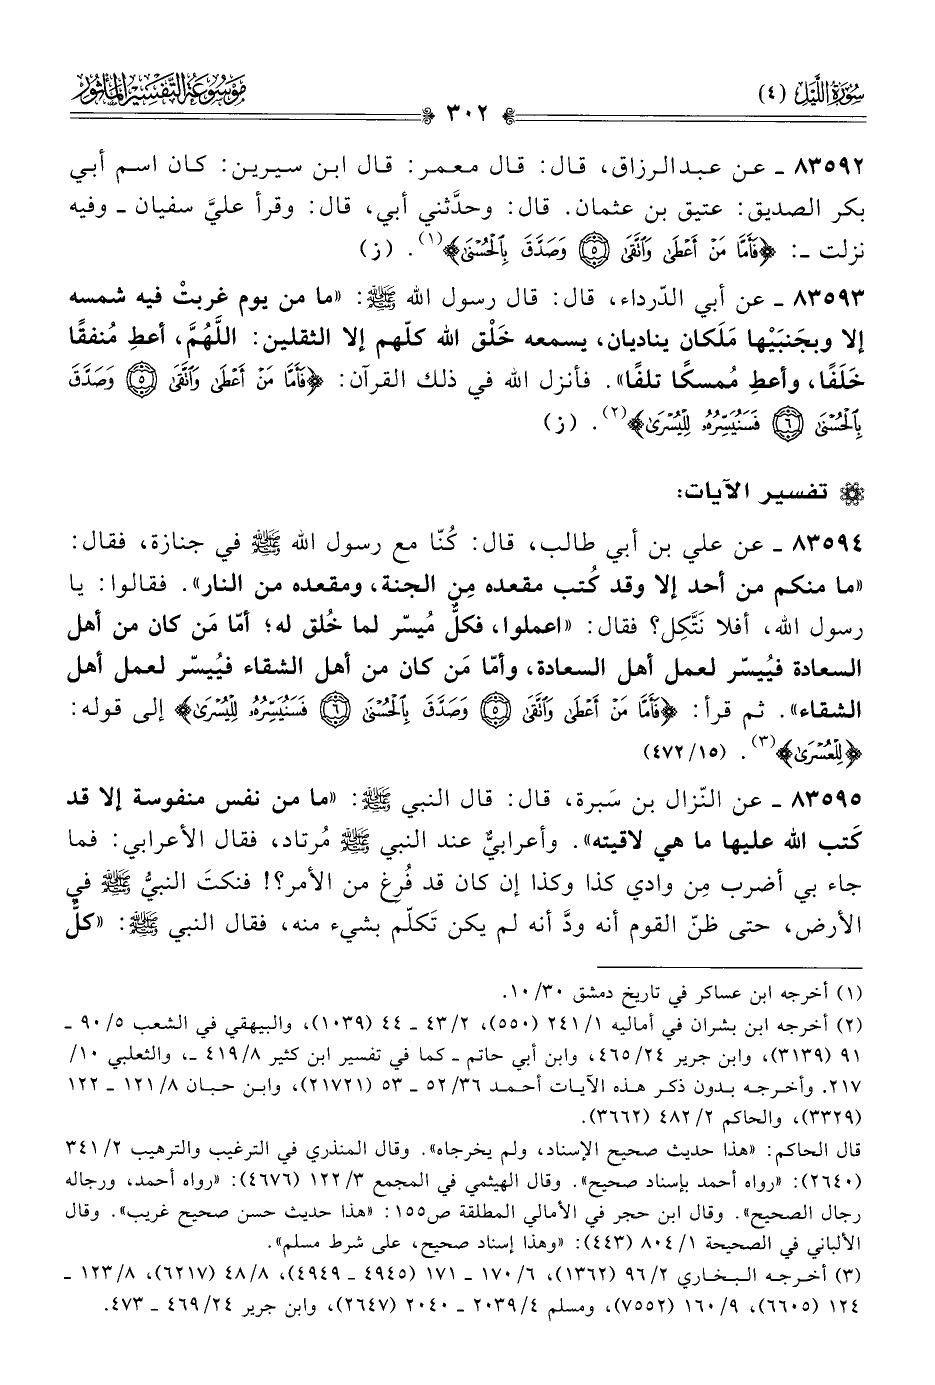 سُورَةُ اللَّيْلِ (٤)
مَوْسُوعَةُ التَّفْسِيرِ المَأْثُورِ
٣٠٢
٨٣٥٩٢ ـ عن عبدالرزاق، قال: قال معمر: قال ابن سيرين: كان اسم أبي
بكر الصديق: عتيق بن عثمان. قال: وحدَّثني أبي، قال: وقرأ عليَّ سفيان ـ وفيه
نزلت ـ: ﴿فَأَمَّا مَنْ أَعْطَىٰ وَٱتَّقَىٰ ۝٥ وَصَدَّقَ بِٱلْحُسْنَىٰ﴾(١). (ز)
٨٣٥٩٣ ـ عن أبي الدّرداء، قال: قال رسول الله ﷺ: «ما من يوم غربتْ فيه شمسه
إلا وبجَنبَيْها مَلَكان يناديان، يسمعه خَلْق الله كلّهم إلا الثقلين: اللَّهُمَّ، أعطِ مُنفقًا
خَلَفًا، وأعطِ مُمسكًا تلفًا». فأنزل الله في ذلك القرآن: ﴿فَأَمَّا مَنْ أَعْطَىٰ وَٱتَّقَىٰ ۝٥ وَصَدَّقَ
بِٱلْحُسْنَىٰ ۝٦ فَسَنُيَسِّرُهُۥ لِلْيُسْرَىٰ﴾(٢). (ز)
تفسير الآيات:
٨٣٥٩٤ ـ عن علي بن أبي طالب، قال: كُنّا مع رسول الله ﷺ في جنازة، فقال:
«ما منكم من أحد إلا وقد كُتب مقعده مِن الجنة، ومقعده من النار». فقالوا: يا
رسول الله، أفلا نَتَّكِل؟ فقال: «اعملوا، فكلٌّ مُيسّر لما خُلق له؛ أمّا مَن كان من أهل
السعادة فيُيسّر لعمل أهل السعادة، وأمّا مَن كان من أهل الشقاء فيُيسّر لعمل أهل
الشقاء». ثم قرأ: ﴿فَأَمَّا مَنْ أَعْطَىٰ وَٱتَّقَىٰ ۝٥ وَصَدَّقَ بِٱلْحُسْنَىٰ ۝٦ فَسَنُيَسِّرُهُۥ لِلْيُسْرَىٰ﴾ إلى قوله:
﴿لِلْعُسْرَىٰ﴾(٣). (١٥/ ٤٧٢)
٨٣٥٩٥ ـ عن النّزال بن سَبرة، قال: قال النبي ﷺ: «ما من نفس منفوسة إلا قد
كَتب الله عليها ما هي لاقيته». وأعرابيٌّ عند النبي ﷺ مُرتاد، فقال الأعرابي: فما
جاء بي أضرب مِن وادي كذا وكذا إن كان قد فُرِغ من الأمر؟! فنكتَ النبيُّ ﷺ في
الأرض، حتى ظنّ القوم أنه ودَّ أنه لم يكن تَكلّم بشيء منه، فقال النبي ﷺ: «كلٌّ
(١) أخرجه ابن عساكر في تاريخ دمشق ٣٠/ ١٠.
(٢) أخرجه ابن بشران في أماليه ١/ ٢٤١ (٥٥٠)، ٢/ ٤٣ ـ ٤٤ (١٠٣٩)، والبيهقي في الشعب ٥/ ٩٠ ـ
٩١ (٣١٣٩)، وابن جرير ٢٤/ ٤٦٥، وابن أبي حاتم ـ كما في تفسير ابن كثير ٨/ ٤١٩ ـ، والثعلبي ١٠/
٢١٧. وأخرجه بدون ذكر هذه الآيات أحمد ٣٦/ ٥٢ ـ ٥٣ (٢١٧٢١)، وابن حبان ٨/ ١٢١ ـ ١٢٢
(٣٣٢٩)، والحاكم ٢/ ٤٨٢ (٣٦٦٢).
قال الحاكم: «هذا حديث صحيح الإسناد، ولم يخرجاه». وقال المنذري في الترغيب والترهيب ٢/ ٣٤١
(٢٦٤٠): «رواه أحمد بإسناد صحيح». وقال الهيثمي في المجمع ٣/ ١٢٢ (٤٦٧٦): «رواه أحمد، ورجاله
رجال الصحيح». وقال ابن حجر في الأمالي المطلقة ص١٥٥: «هذا حديث حسن صحيح غريب». وقال
الألباني في الصحيحة ١/ ٨٠٤ (٤٤٣): «وهذا إسناد صحيح، على شرط مسلم».
(٣) أخرجه البخاري ٢/ ٩٦ (١٣٦٢)، ٦/ ١٧٠ ـ ١٧١ (٤٩٤٥ ـ ٤٩٤٩)، ٨/ ٤٨ (٦٢١٧)، ٨/ ١٢٣ ـ
١٢٤ (٦٦٠٥)، ٩/ ١٦٠ (٧٥٥٢)، ومسلم ٤/ ٢٠٣٩ ـ ٢٠٤٠ (٢٦٤٧)، وابن جرير ٢٤/ ٤٦٩ ـ ٤٧٣.